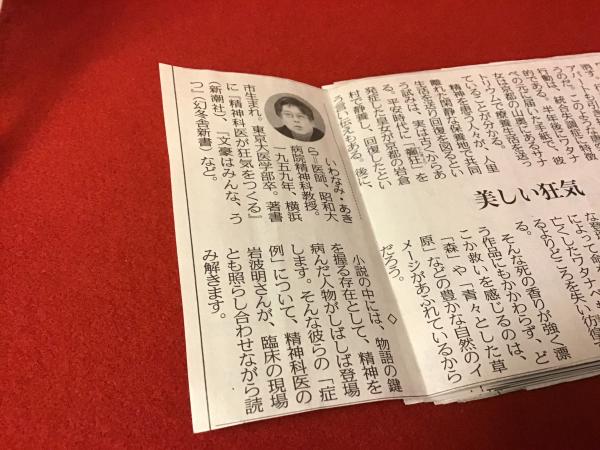 的である。半年後にワタナ
べの元に届いた手紙で、彼
女は京都の山奥にあるサナ
トリウムで療養生活を送っ
ていることが分かる。
精神を患う人が、人里
離れた閑静な保養地で共同
生活を送り回復を図るとい
う試みは、実は古くからあ
る。平安時代に「癲狂」を
発症した皇女が京都の岩倉
村で静養し、回復したとい
う言い伝えもある。後に、
美しい狂気
によって命を
亡くしたワタナベ
るよりどころを失い彷徨
そんな死の香りが強く漂
う作品にもかかわらず、ど
こか救いを感じるのは、
「森」や「青々とした草
原」などの豊かな自然のイ
メージがあふれているから
だろう。
◇
小説の中には、物語の鍵
を握る存在として、精神を
病んだ人物がしばしば登場
します。そんな彼らの「症
例」について、精神科医の
岩波明さんが、臨床の現場
とも照らし合わせながら読
み解きます。
いわなみ・あき
ら＝医師、昭和大
病院精神科教授。
一九五九年、横浜
市生まれ。東京大医学部卒。著書
に『精神科医が狂気をつくる』
（新潮社）、『文豪はみんな、う
つ』（幻冬舎新書）など。